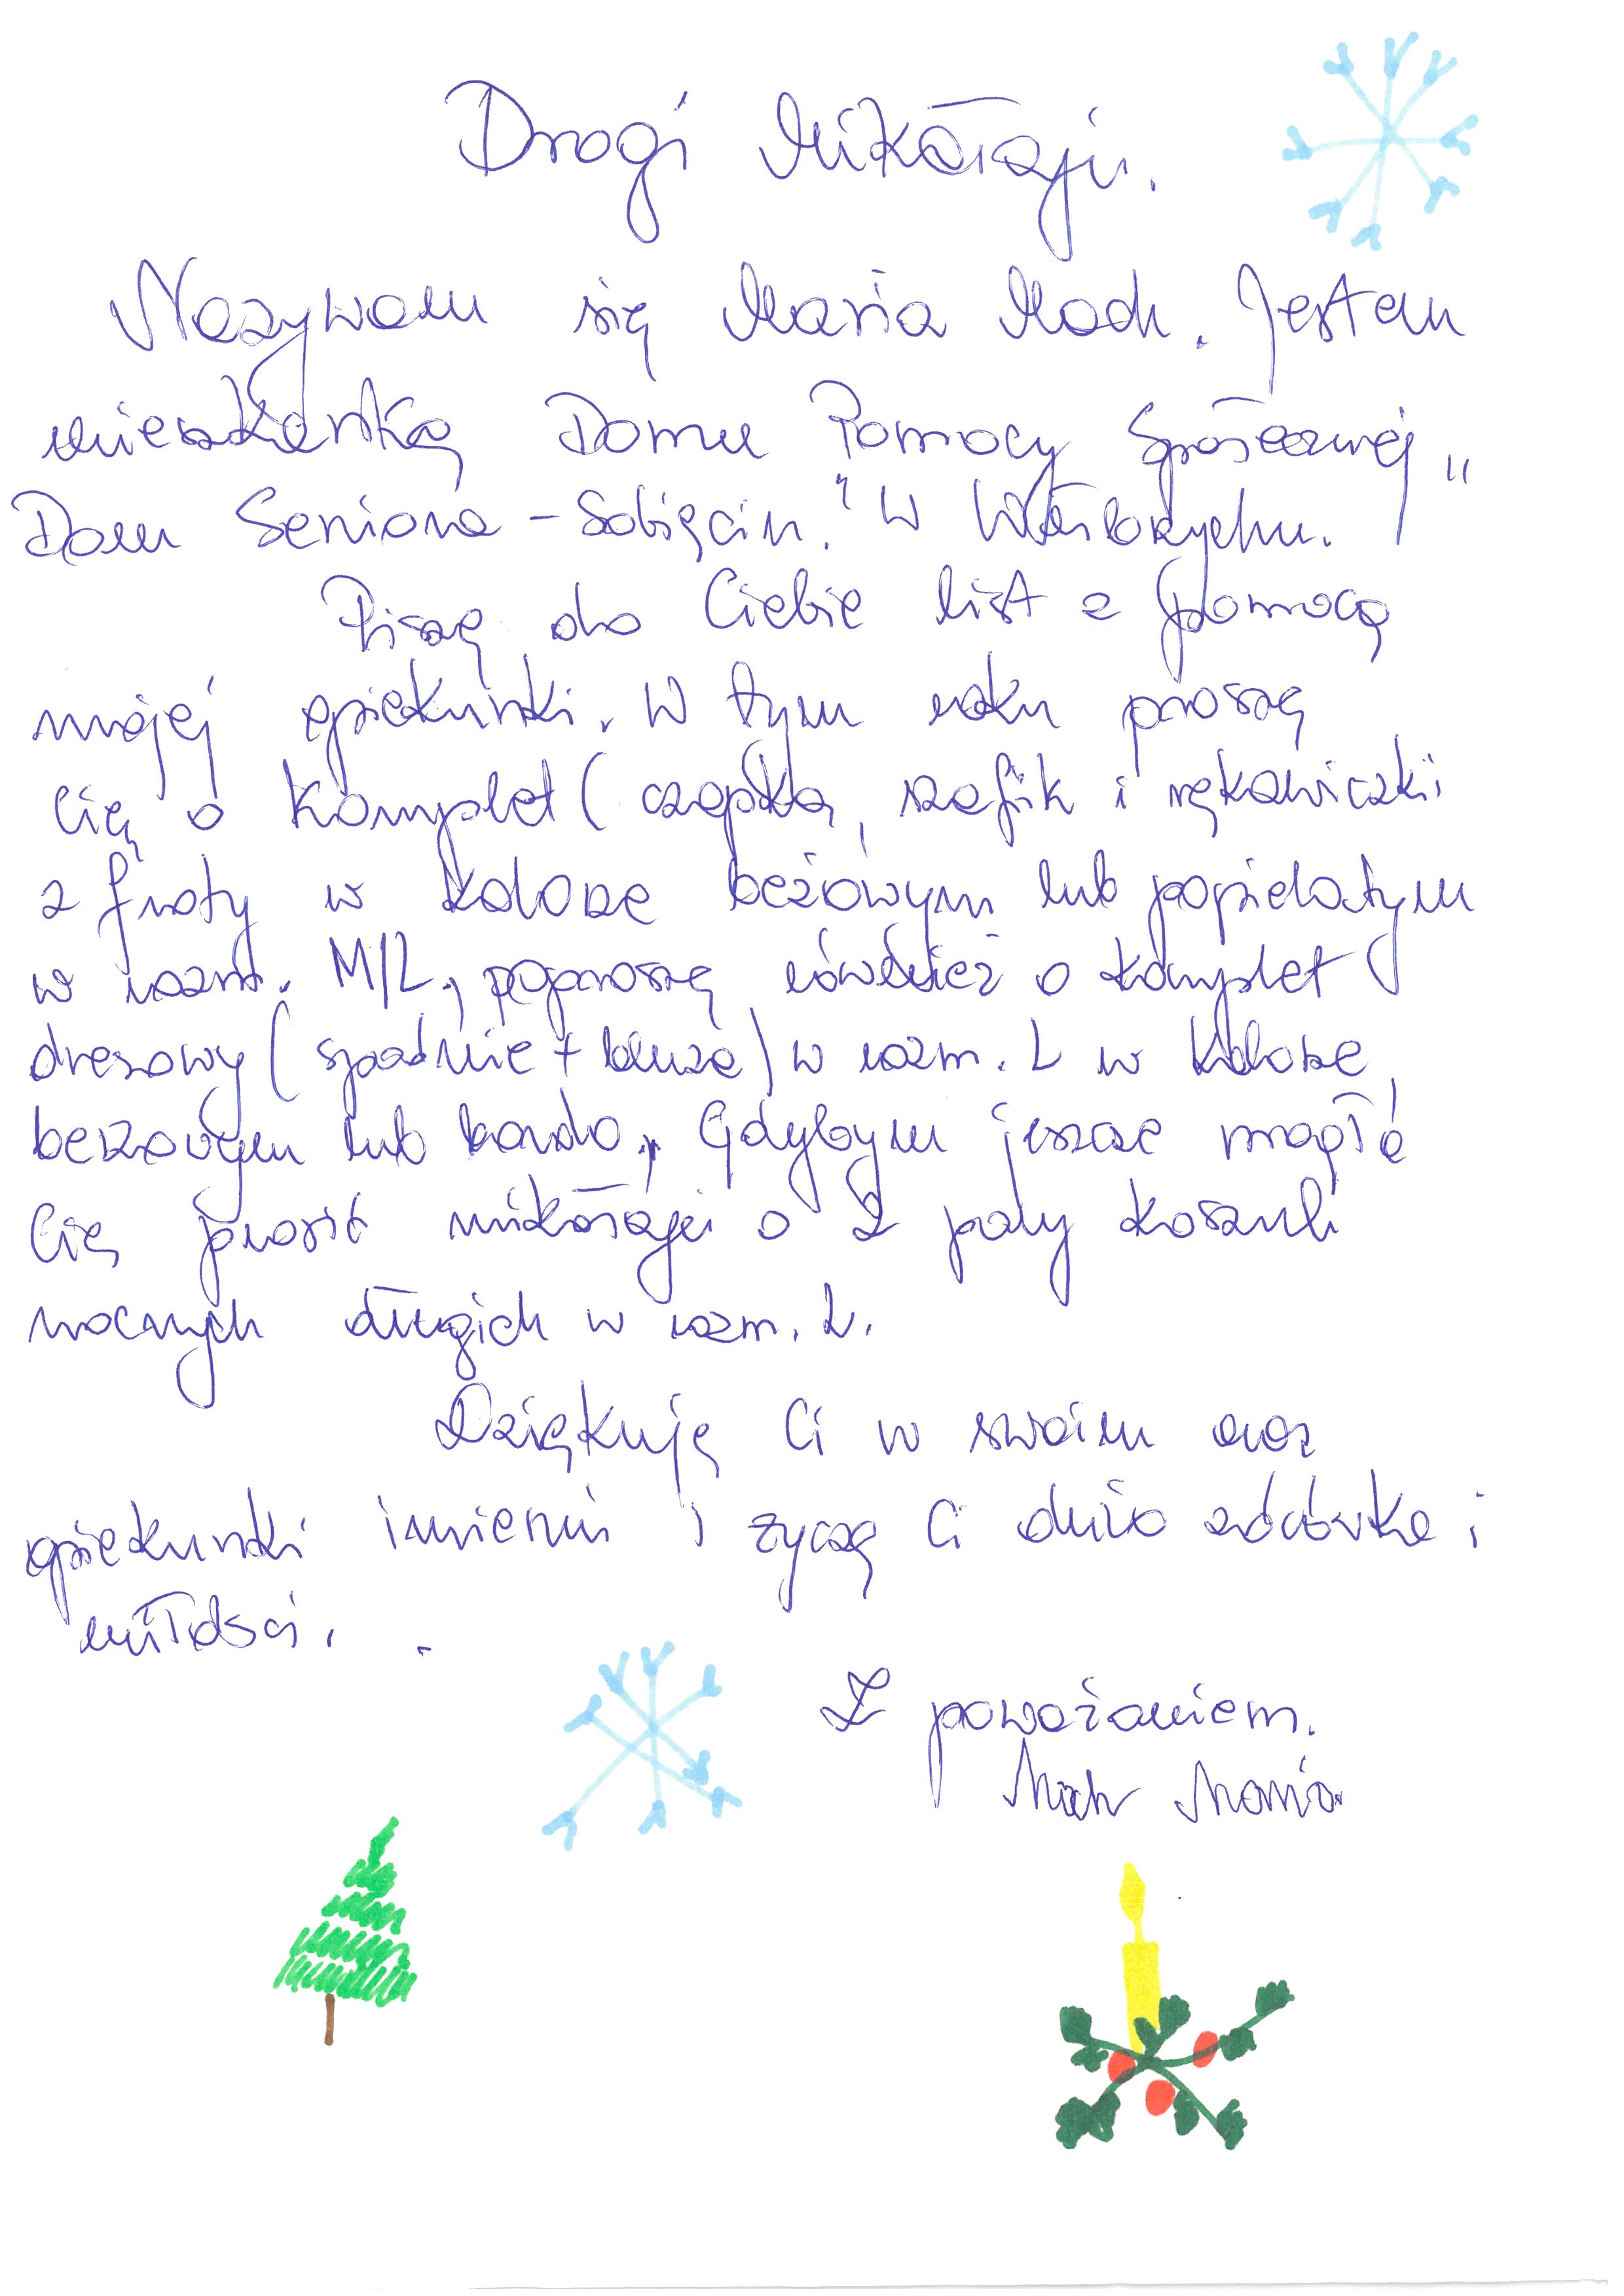 Drogi Mikołaju.
Nazywam się Maria Mach. Jestem
mieszkanką Domu Pomocy Społecznej „
Dom Seniora - Sobięcin." W Wałbrzychu.
Piszę do Ciebie list z pomocą
mojej opiekunki. W tym roku proszę
Cię o komplet ( czapka, szalik i rękawiczki
z froty w kolorze beżowym lub popielatym
w rozm. M/L., poproszę również o komplet
dresowy ( spodnie + bluza) w rozm. L w kolorze
beżowym lub bordo. Gdybym jeszcze mogła
Cię prosić mikołaju o 2 pary koszul
nocnych długich w rozm. L.
Dziękuję Ci w swoim oraz
opiekunki imieniu i życzę Ci dużo zdrówka i
miłości.
Z poważaniem.
Mach Maria